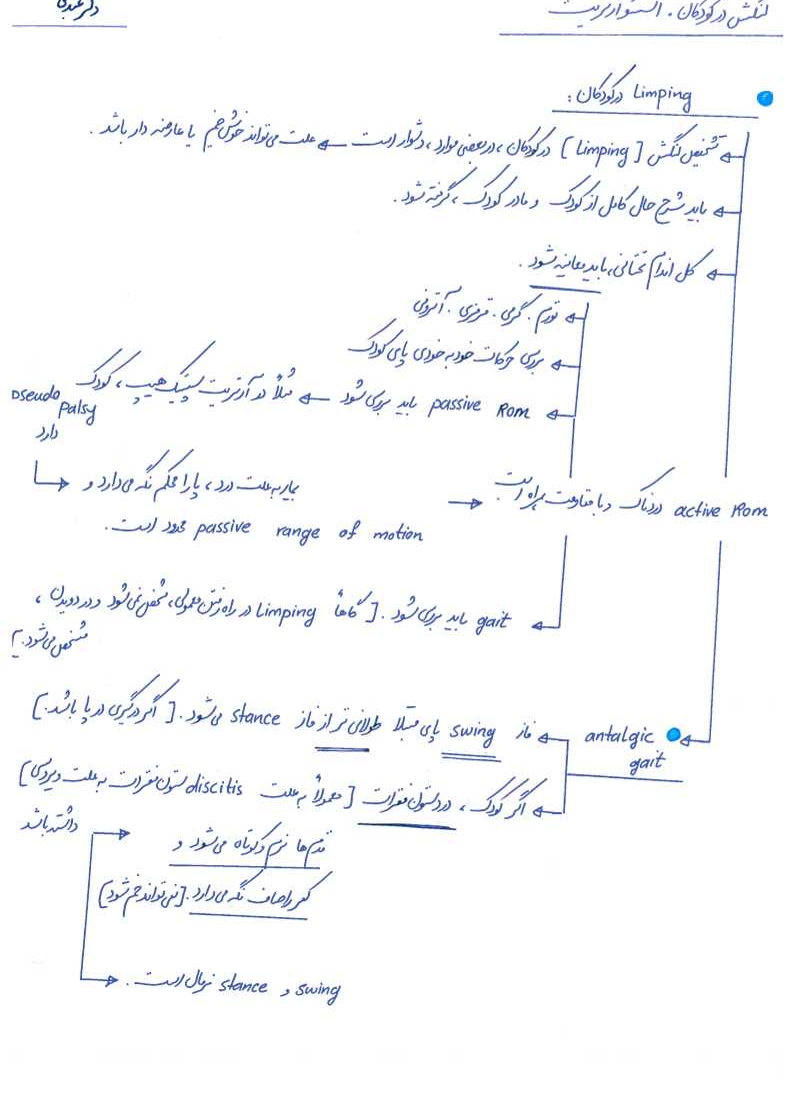 لنگش در کودکان . استئوآرتریت
دکر عبدی
Limping درکودکان :
تشخیص لنگش [Limping] درکودکان ، دربعضی موارد ، دشوار است ← علت می‌تواند خوش‌خیم یا عارضه دار باشد .
باید شرح حال کامل از کودک و مادر کودک ، گرفته شود .
کل اندام تحتانی ، باید معاینه شود .
تورم . گرمی . قرمزی . آتروفی
بررسی حرکات خودبه‌خودی پای کودک
passive Rom باید بررسی شود ← مثلاً در آرتریت سپتیک هیپ ، کودک pseudo palsy دارد
active Rom دردناک و با مقاومت همراه است
→ بیمار به علت درد ، پا را محکم نگه می‌دارد و
passive range of motion محدود است .
gait باید بررسی شود . [گاهاً Limping در راه رفتن معمولی ، مشخص نمی‌شود و در دویدن ،
مشخص می‌شود .]
antalgic gait
فاز swing پای مبتلا طولانی تر از فاز stance می‌شود . [اگر درگیری در پا باشد .]
اگر کودک ، درد ستون فقرات [معمولاً به علت discitis ستون فقرات به علت ویروسی]
داشته باشد
قدم‌ها نرم و کوتاه می‌شود و
کمر را صاف نگه می‌دارد . [نمی‌تواند خم شود]
swing و stance نرمال است .